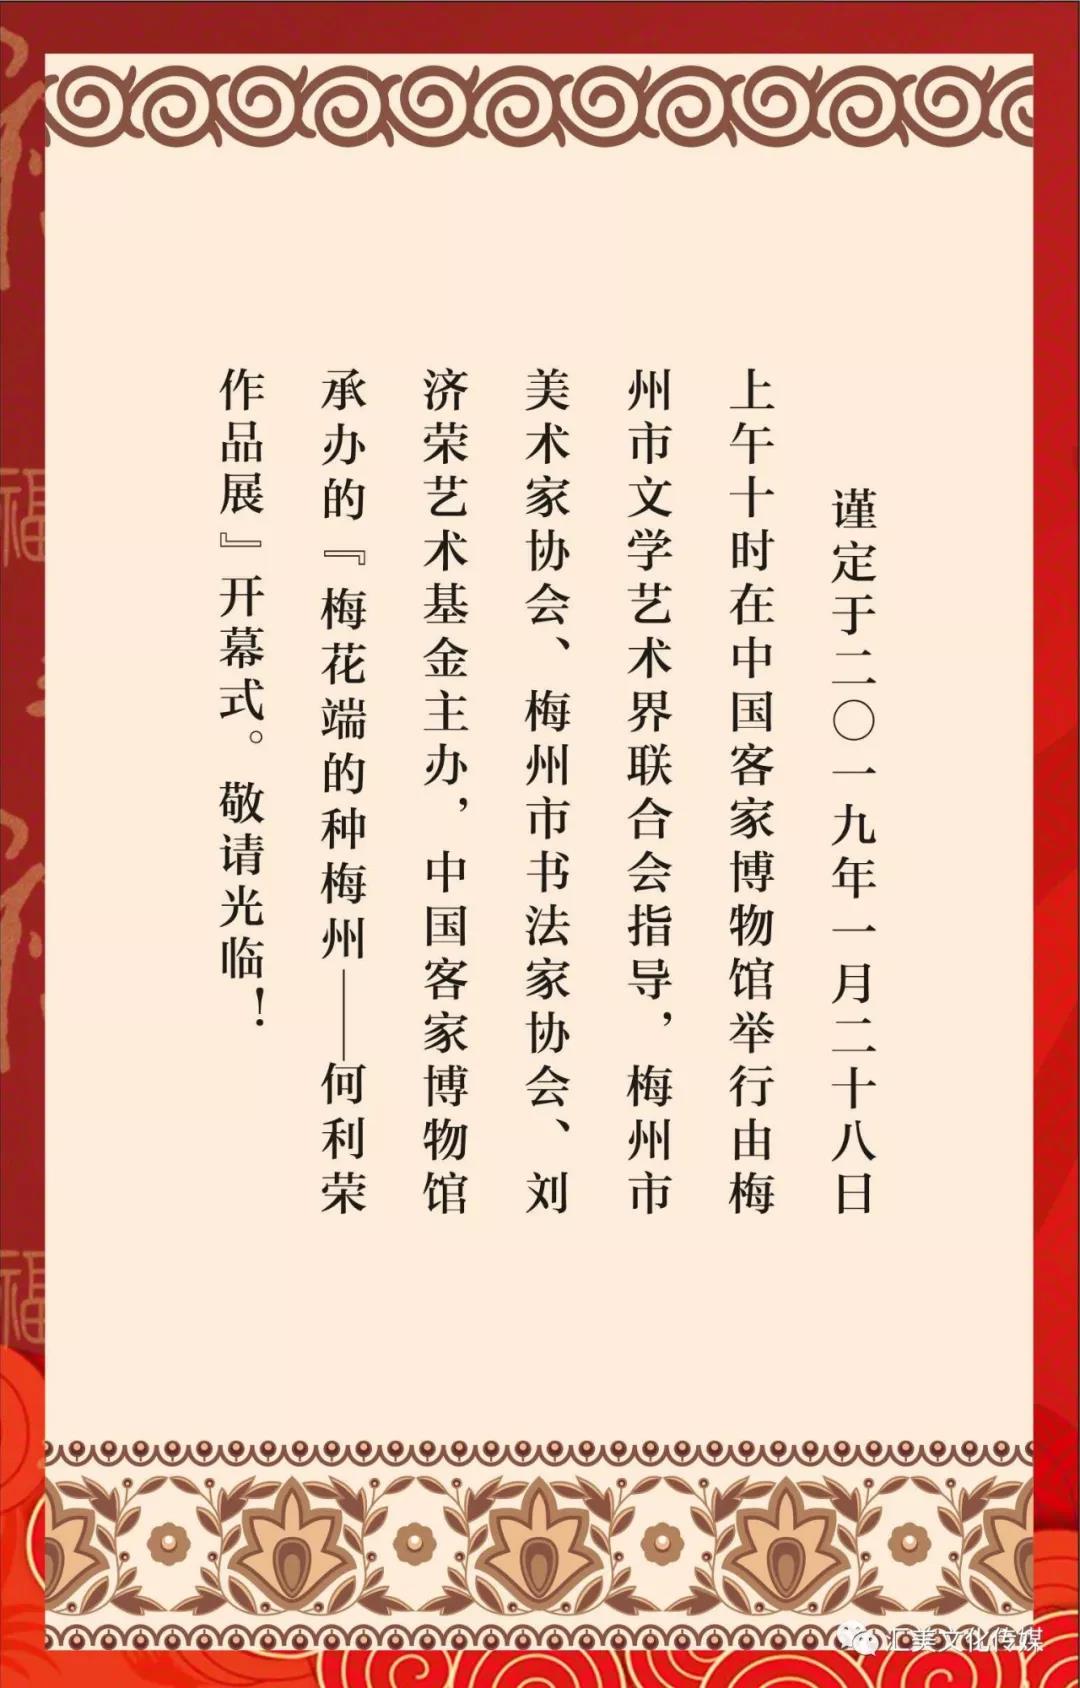 谨定于二〇一九年一月二十八日
上午十时在中国客家博物馆举行由梅
州市文学艺术界联合会指导，梅州市
美术家协会、梅州市书法家协会、刘
济荣艺术基金主办，中国客家博物馆
承办的『梅花端的种梅州——何利荣
作品展』开幕式。敬请光临！
福
福
汇美文化传媒